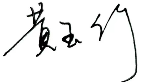 黄玉竹